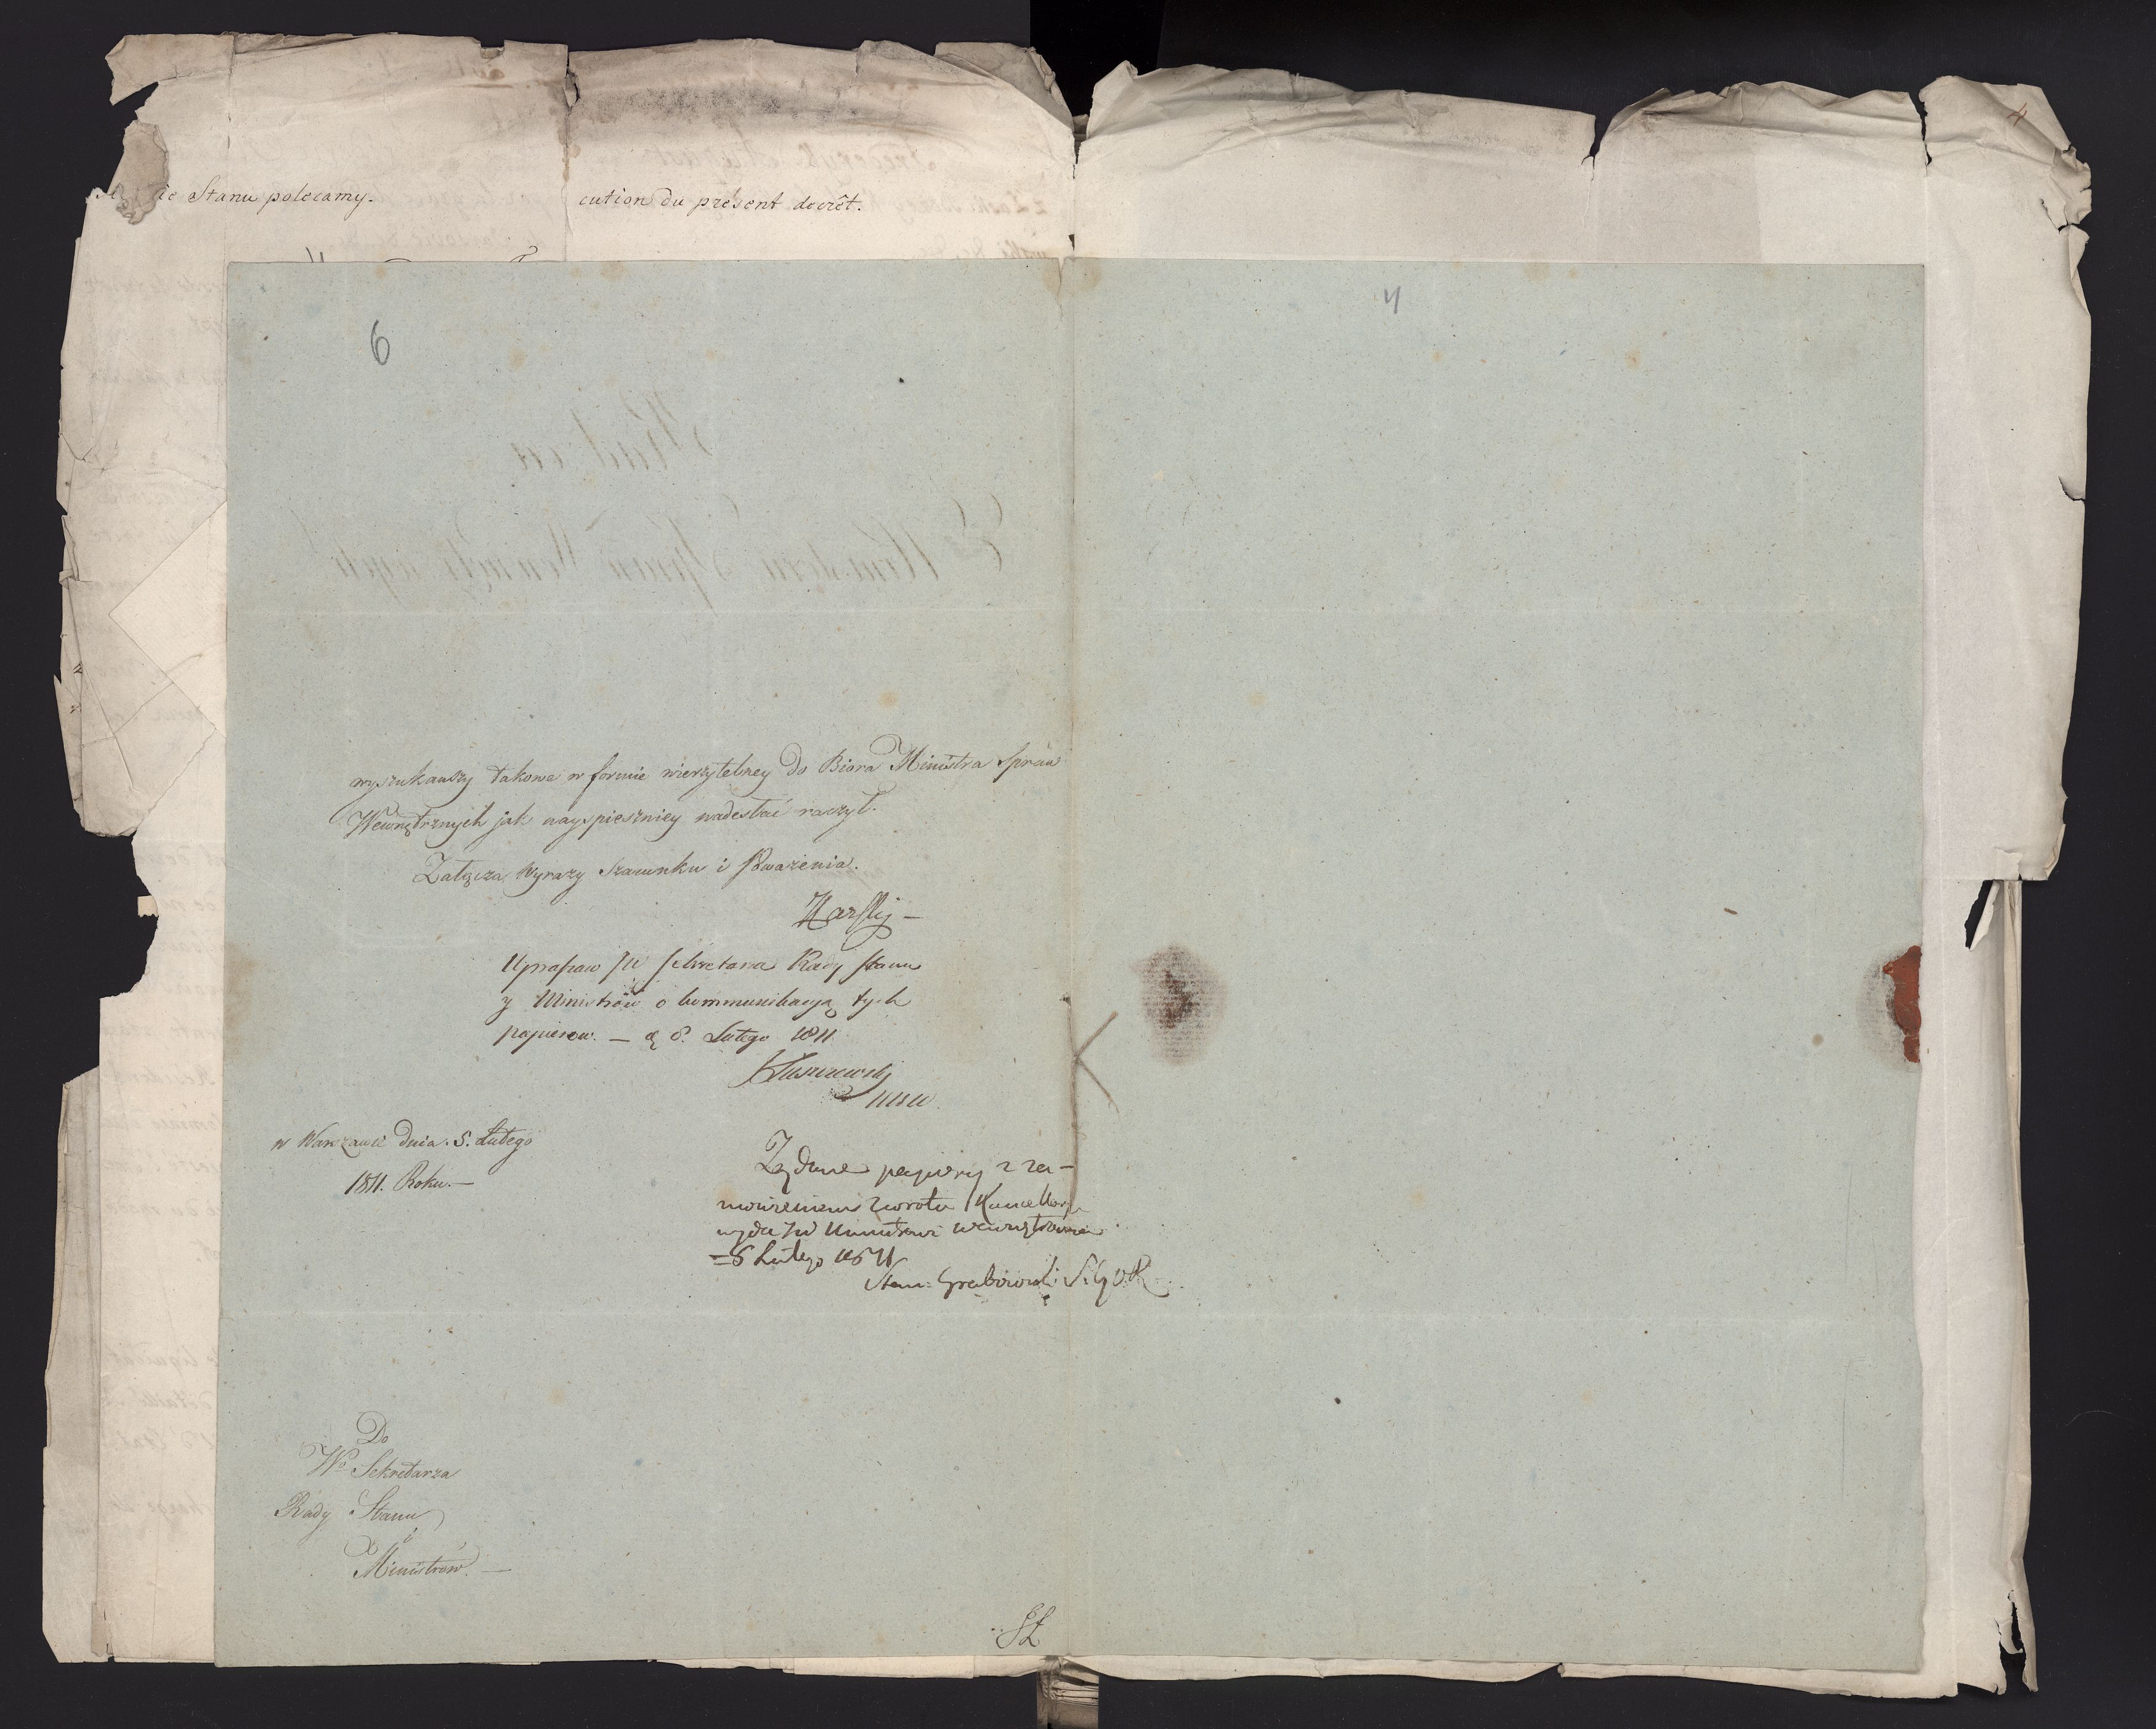 ie Stanu polecamy.
cution du présent decrêt.
4
6
4
wyszukawszy takowe w formie wierzytelney do Biora Ministra Spraw
Wewnętrznych jak nayspieszniey nadesłać raczył.
Załącza Wyrazy Szacunku i Poważenia.
Karski —
Upraszam JW Sekretarza Rady Stanu
y Ministrów o kommunikacyą tych
papierow. — d. 6. Lutego 1811
w Warszawie dnia 5. Lutego
1811. Roku. —
Żądane papiery z za-
mówieniem zwrotu Kancellarya
wyda JW Ministrowi wewnętrznemu
6 Lutego 1811
Stan: Grabowski S. G. R.
Do
Wo Sekretarza
Rady Stanu
i
Ministrów. —